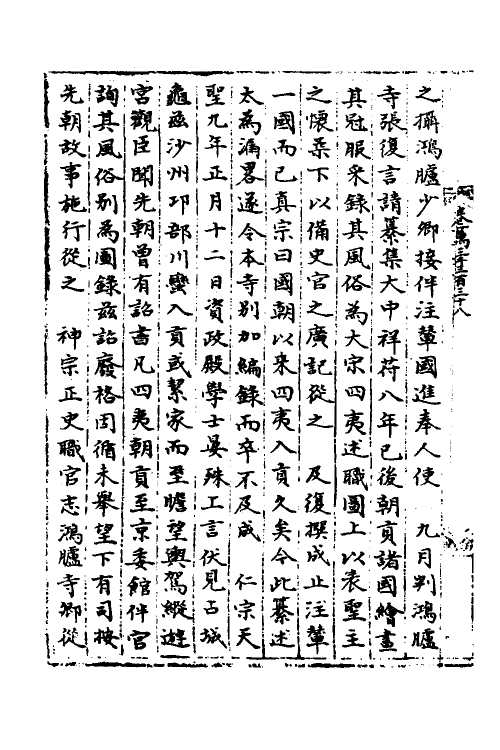 之攝鴻臚少卿接伴注輦國進奉人使　九月判鴻臚
寺張復言請纂集大中祥符八年已後朝貢諸國繪畫
其冠服采錄其風俗為大宋四夷述職圖上以表聖主
之懷柔下以備史官之廣記從之　及復撰成止注輦
一國而已真宗曰國朝以来四夷入貢久矣今此纂述
太為漏畧遂令本寺别加編錄而卒不及成　仁宗天
聖九年正月十二日資政殿學士晏殊工言伏見占城
龜茲沙州邛部川蠻入貢或絜家而至瞻望輿駕縱遊
宮觀臣聞先朝曾有詔書凡四夷朝貢至京委館伴官
詢其風俗别為圖錄茲詔廢格因循未舉望下有司按
先朝故事施行從之　神宗正史職官志鴻臚寺卿從